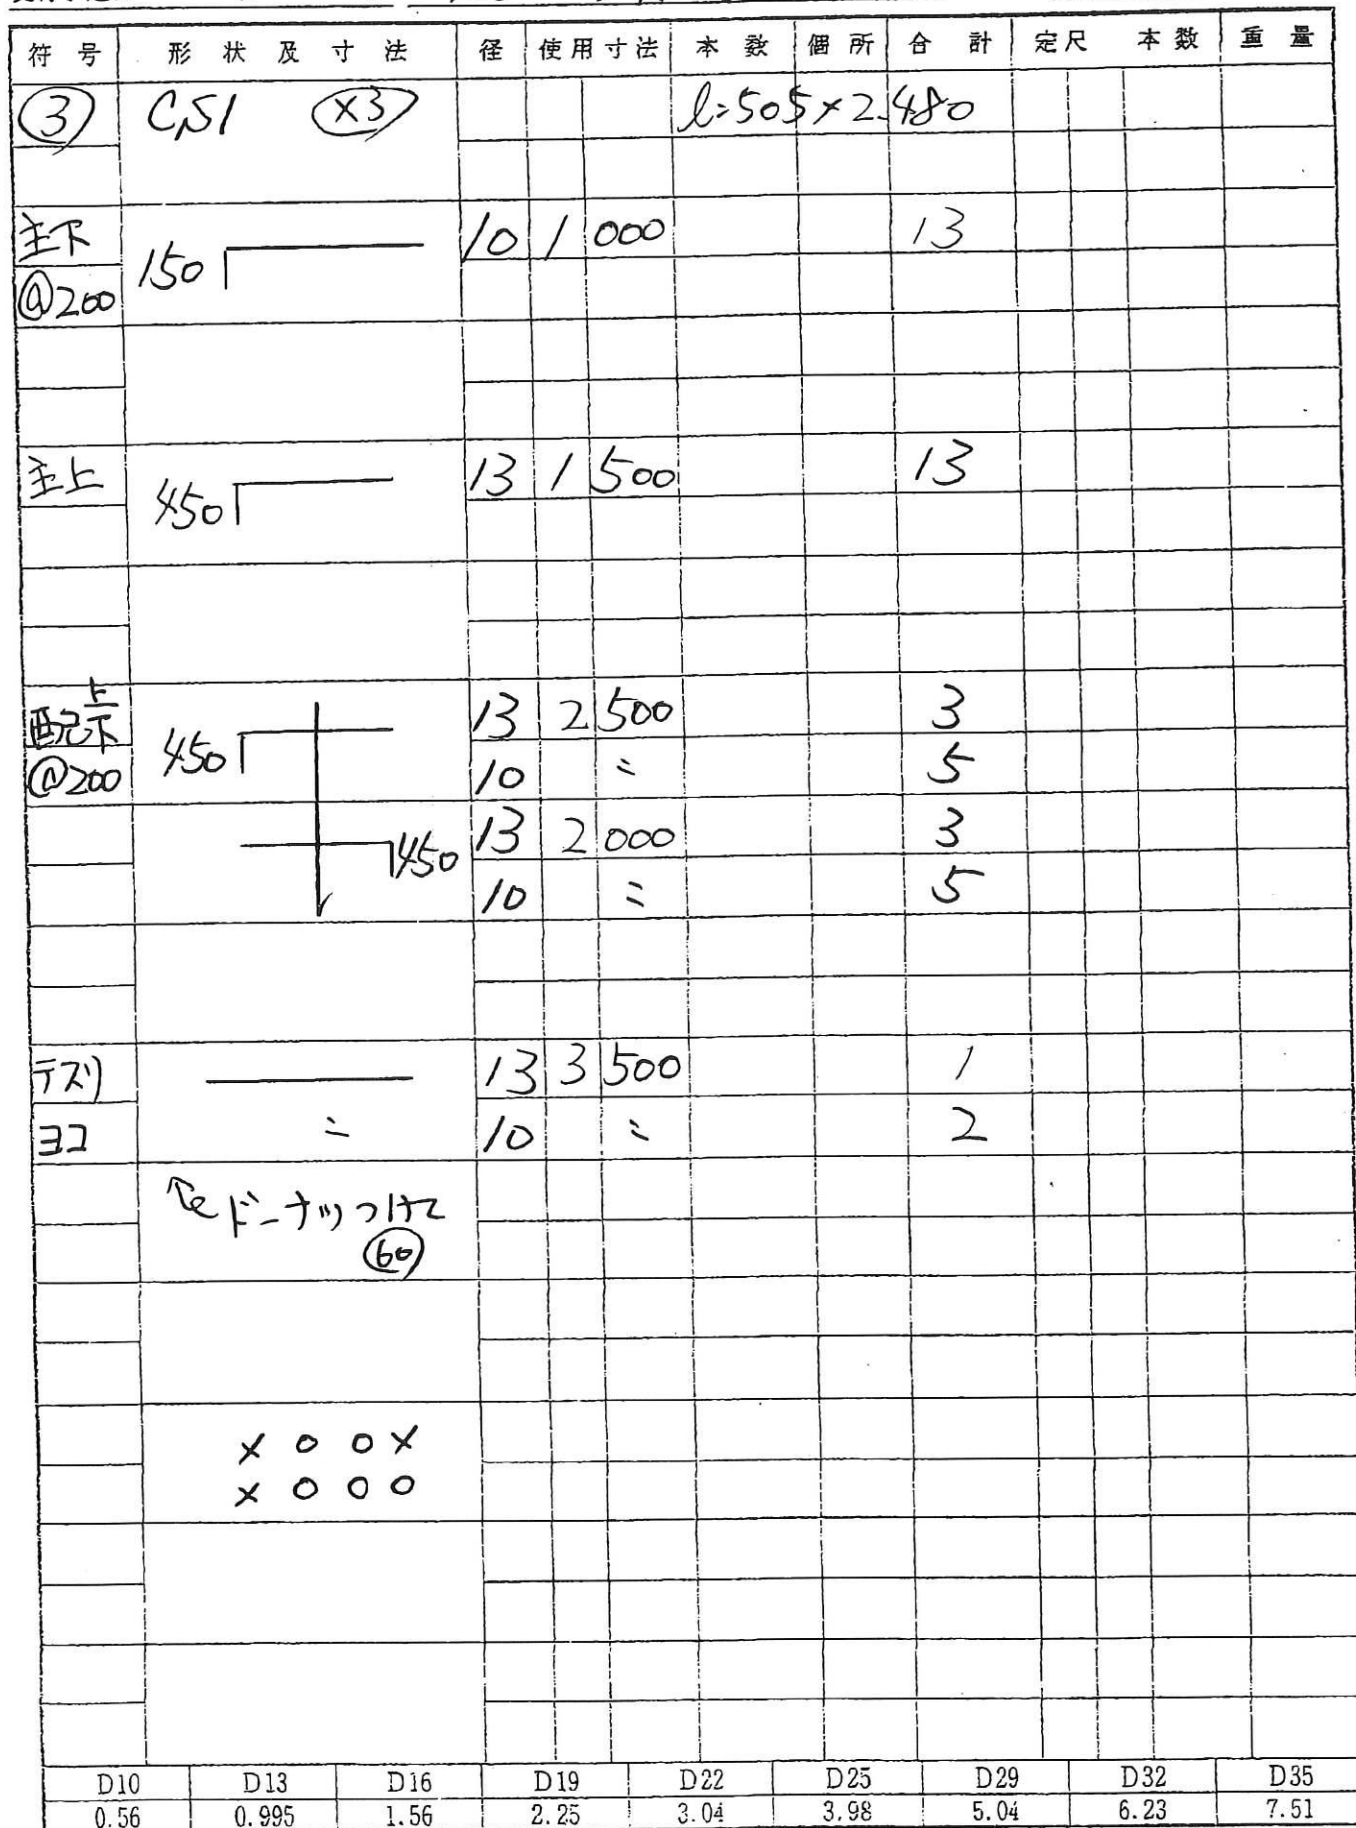 符号 形状及寸法 径 使用寸法 本数 個所 合計 定尺 本数 重量
③ CS1 ×3 l=505×2.480
主下 150 10 1 000 13
@200
主上 450 13 1 500 13
配上下 450 13 2 500 3
@200 10 〃 5
450 13 2 000 3
10 〃 5
テスリ 13 3 500 1
ヨコ 〃 10 〃 2
ドーナツつけて
60
× o o ×
× o o o
D10 D13 D16 D19 D22 D25 D29 D32 D35
0.56 0.995 1.56 2.25 3.04 3.98 5.04 6.23 7.51